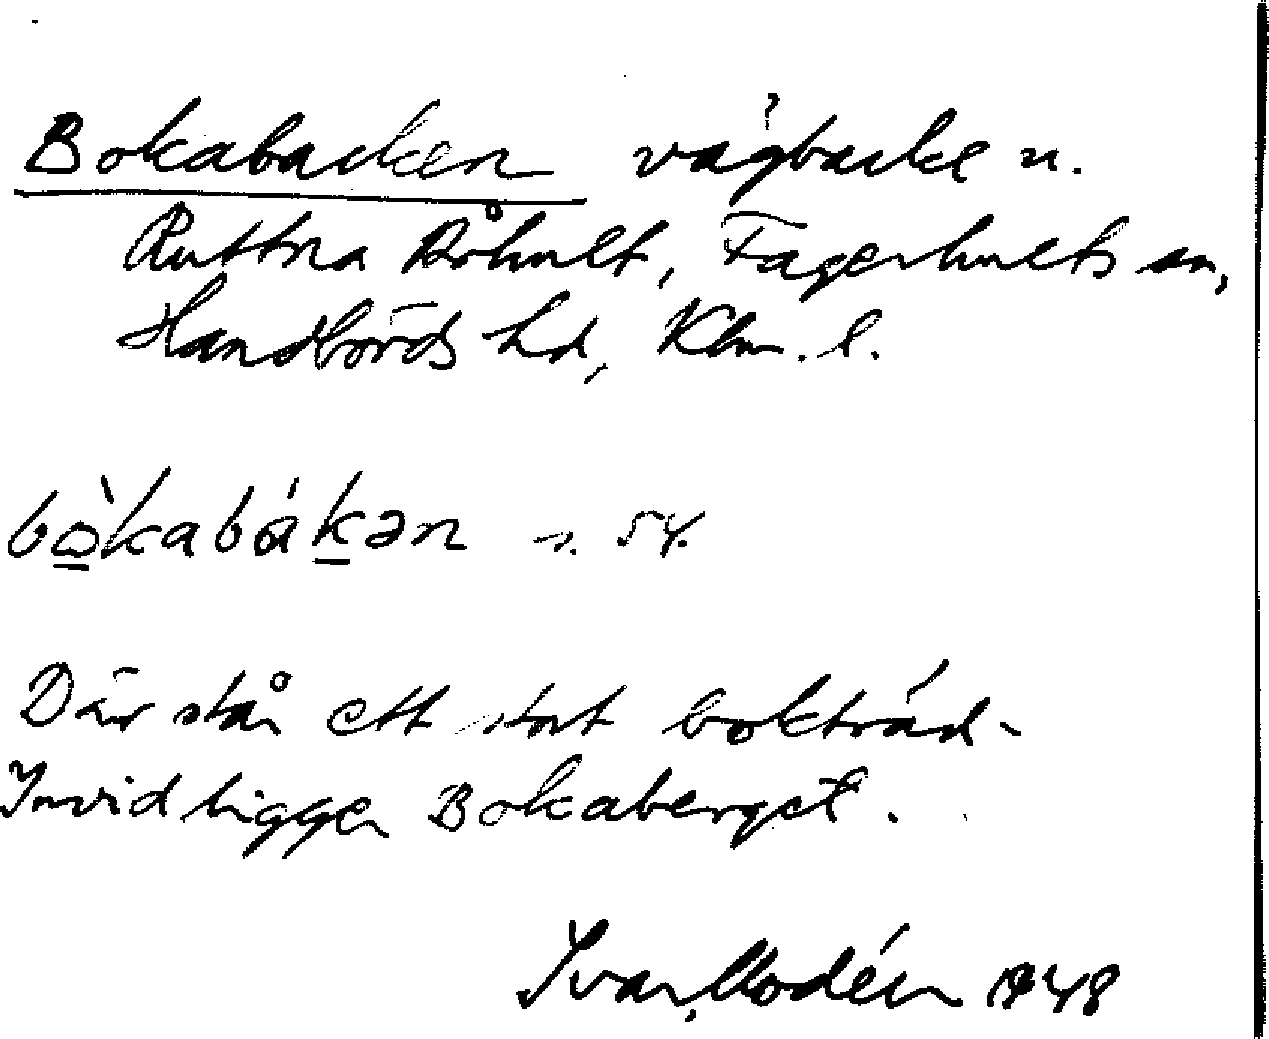 Bokabacken vägbacke n.
Ruttna Råhult, Fagerhults sn,
Handbörds hd, Klm. l.
bò̲kabák̲ən s. 54.
Där står ett stort bokträd.
Invid ligger Bokaberget.
Ivar Modéer 1948